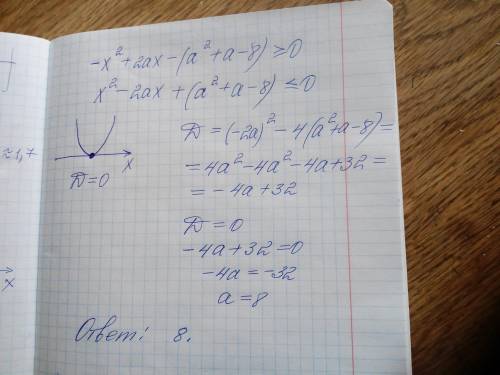 -x² + 2ax - (a² + a - 8) ≥ 0
x² - 2ax + (a² + a - 8) ≤ 0
≈ 1,7
x
D = 0
D = (-2a)² - 4(a² + a - 8) =
= 4a² - 4a² - 4a + 32 =
= - 4a + 32
D = 0
-4a + 32 = 0
-4a = -32
a = 8
x
Ответ: 8.